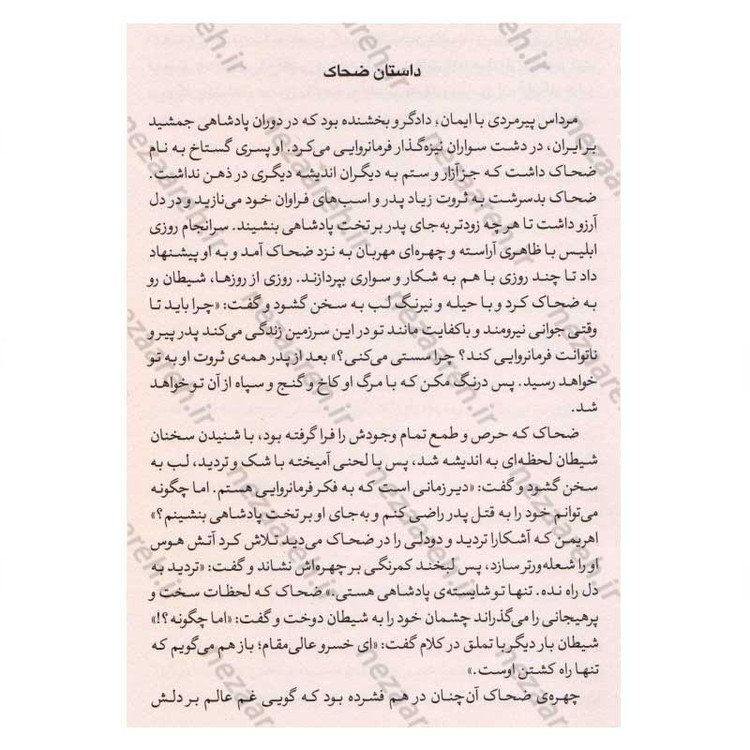 داستان ضحاک
مرداس پیرمردی با ایمان، دادگر و بخشنده بود که در دوران پادشاهی جمشید
بر ایران، در دشت سواران نیزه‌گذار فرمانروایی می‌کرد. او پسری گستاخ به نام
ضحاک داشت که جز آزار و ستم به دیگران اندیشه دیگری در ذهن نداشت.
ضحاک بدسرشت به ثروت زیاد پدر و اسب‌های فراوان خود می‌نازید و در دل
آرزو داشت تا هر چه زودتر به جای پدر بر تخت پادشاهی بنشیند. سرانجام روزی
ابلیس با ظاهری آراسته و چهره‌ای مهربان به نزد ضحاک آمد و به او پیشنهاد
داد تا چند روزی با هم به شکار و سواری بپردازند. روزی از روزها، شیطان رو
به ضحاک کرد و با حیله و نیرنگ لب به سخن گشود و گفت: «چرا باید تا
وقتی جوانی نیرومند و باکفایت مانند تو در این سرزمین زندگی می‌کند پدر پیر و
ناتوانت فرمانروایی کند؟ چرا سستی می‌کنی؟» بعد از پدر همه‌ی ثروت او به تو
خواهد رسید. پس درنگ مکن که با مرگ او کاخ و گنج و سپاه از آن تو خواهد
شد.
ضحاک که حرص و طمع تمام وجودش را فرا گرفته بود، با شنیدن سخنان
شیطان لحظه‌ای به اندیشه شد، پس با لحنی آمیخته با شک و تردید، لب به
سخن گشود و گفت: «دیر زمانی است که به فکر فرمانروایی هستم. اما چگونه
می‌توانم خود را به قتل پدر راضی کنم و به‌جای او بر تخت پادشاهی بنشینم؟»
اهریمن که آشکارا تردید و دودلی را در ضحاک می‌دید تلاش کرد آتش هوس
او را شعله‌ورتر سازد، پس لبخند کمرنگی بر چهره‌اش نشاند و گفت: «تردید به
دل راه نده. تنها تو شایسته‌ی پادشاهی هستی.» ضحاک که لحظات سخت و
پرهیجانی را می‌گذراند چشمان خود را به شیطان دوخت و گفت: «اما چگونه؟!»
شیطان بار دیگر با تملق در کلام گفت: «ای خسرو عالی‌مقام؛ باز هم می‌گویم که
تنها راه کشتن اوست.»
چهره‌ی ضحاک آن‌چنان در هم فشرده بود که گویی غم عالم بر دلش
nezaareh.ir